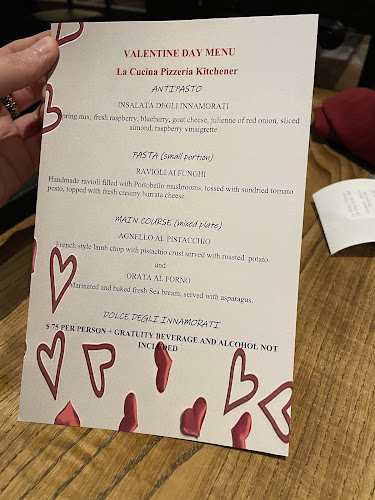 VALENTINE DAY MENU
La Cucina Pizzeria Kitchener
ANTIPASTO
INSALATA DEGLI INNAMORATI
mix, fresh raspberry, blueberry, goat cheese, julienne of red onion, sliced
almond, raspberry vinaigrette.
PASTA (small portion)
RAVIOLI AI FUNGHI
Handmade ravioli filled with Portobello mushrooms, tossed with sundried tomato
pesto, topped with fresh creamy burrata cheese.
MAIN COURSE (mixed plate)
AGNELLO AL PISTACCHIO
French style lamb chop with pistachio crust served with roasted potato.
and
ORATA AL FORNO
Marinated and baked fresh Sea bream, served with asparagus.
DOLCE DEGLI INNAMORATI
$ 75 PER PERSON + GRATUITY BEVERAGE AND ALCOHOL NOT
INCLUDED